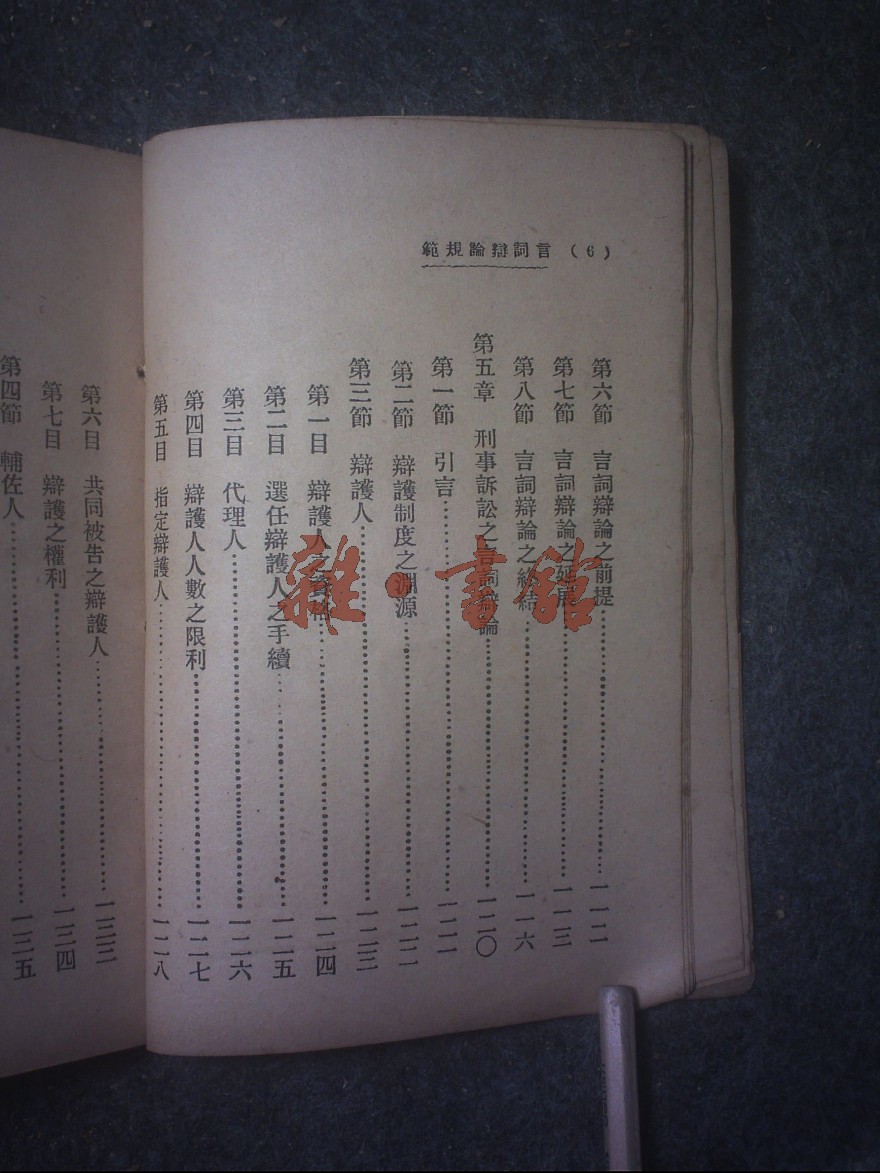 (6) 言詞辯論規範
第六節 言詞辯論之前提……一一二
第七節 言詞辯論之延展……一一三
第八節 言詞辯論之終結……一一六
第五章 刑事訴訟之言詞辯論……一二〇
第一節 引言……一二一
第二節 辯護制度之淵源……一二二
第三節 辯護人……一二三
第一目 辯護人之資格……一二四
第二目 選任辯護人之手續……一二五
第三目 代理人……一二六
第四目 辯護人人數之限利……一二七
第五目 指定辯護人……一二八
第六目 共同被告之辯護人……一三三
第七目 辯護之權利……一三四
第四節 輔佐人……一三五
雜·書館